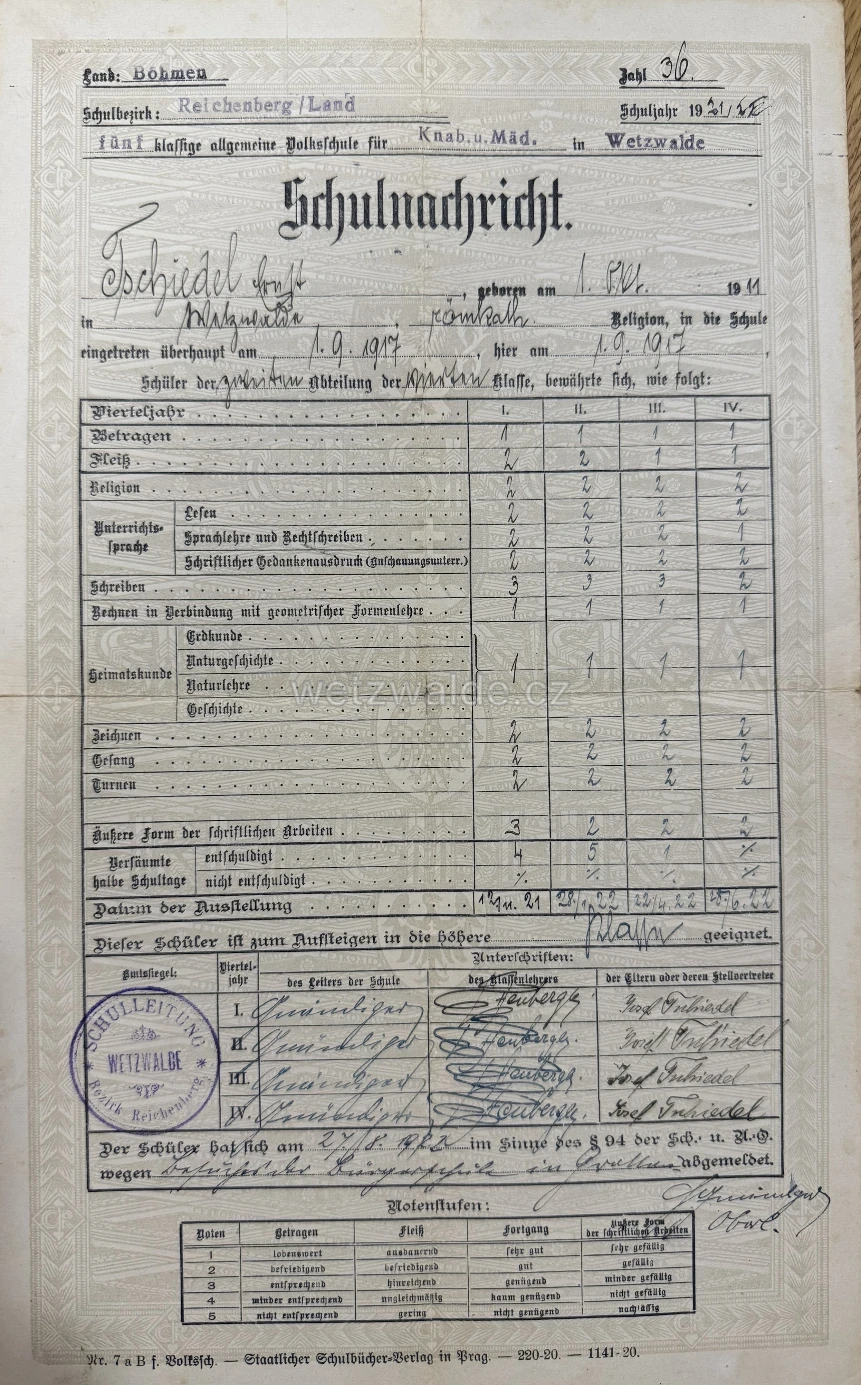 Land: Böhmen Zahl 36.
Schulbezirk: Reichenberg/Land Schuljahr 1921/22
fünf klassige allgemeine Volksschule für Knab.u.Mäd. in Wetzwalde
Schulnachricht.
Tschiedel Ernst, geboren am 1. Okt. 1911
in Wetzwalde, römkath. Religion, in die Schule
eingetreten überhaupt am 1.9.1917, hier am 1.9.1917,
Schüler der zweiten Abteilung der vierten Klasse, bewährte sich, wie folgt:
Vierteljahr I. II. III. IV.
Betragen 1 1 1 1
Fleiß 2 2 1 1
Religion 2 2 2 2
Unterrichts-
sprache
Lesen 2 2 2 2
Sprachlehre und Rechtschreiben 2 2 2 1
Schriftlicher Gedankenausdruck (Anschauungsunterr.) 2 2 2 2
Schreiben 3 3 3 2
Rechnen in Verbindung mit geometrischer Formenlehre 1 1 1 1
Heimatskunde
Erdkunde
Naturgeschichte
Naturlehre
Geschichte
1 1 1 1
wetzwalde.cz
Zeichnen 2 2 2 2
Gesang 2 2 2 2
Turnen 2 2 2 2
Äußere Form der schriftlichen Arbeiten 3 2 2 2
Versäumte
halbe Schultage
entschuldigt 4 5 1 %
nicht entschuldigt % % % %
Datum der Ausstellung 12/11. 21 28/1. 22 22/4. 22 28/6. 22
Dieser Schüler ist zum Aufsteigen in die höhere Klasse geeignet.
Amtssiegel: Viertel-
jahr
Unterschriften:
des Leiters der Schule des Klassenlehrers der Eltern oder deren Stellvertreter
I. Josef Tschiedel
II. Josef Tschiedel
III. Josef Tschiedel
IV. Josef Tschiedel
SCHULLEITUNG
WETZWALDE
Bezirk Reichenberg
Der Schüler hat sich am 27/8. 1922 im Sinne des § 94 der Sch.- u. U.-O.
wegen Besuches der Bürgerschule in Grottau abgemeldet.
Oberl.
Notenstufen:
Noten Betragen Fleiß Fortgang Äußere Form
der schriftlichen Arbeiten
1 lobenswert ausdauernd sehr gut sehr gefällig
2 befriedigend befriedigend gut gefällig
3 entsprechend hinreichend genügend minder gefällig
4 minder entsprechend ungleichmäßig kaum genügend nicht gefällig
5 nicht entsprechend gering nicht genügend nachlässig
Nr. 7 a B f. Volkssch. — Staatlicher Schulbücher-Verlag in Prag. — 220-20. — 1141-20.